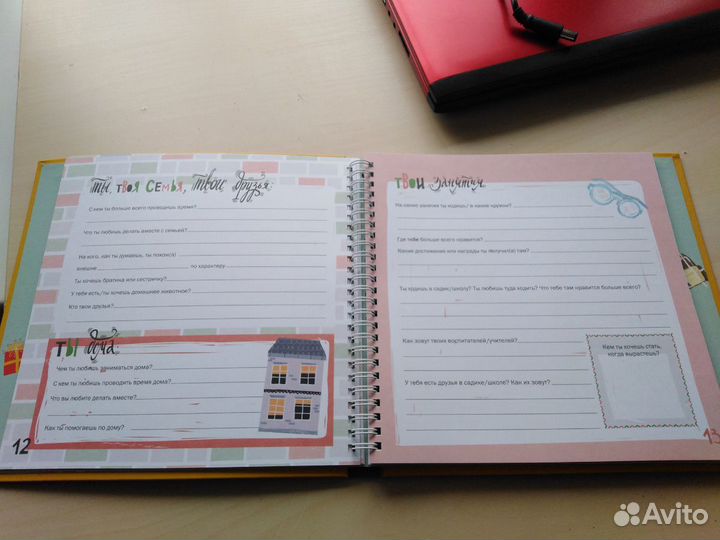 Ты, твоя семья, твои друзья
С кем ты больше всего проводишь время?
Что ты любишь делать вместе с семьей?
На кого, как ты думаешь, ты похож(а)
внешне по характеру
Ты хочешь братика или сестричку?
У тебя есть/ты хочешь домашнее животное?
Кто твои друзья?
Ты дома
Чем ты любишь заниматься дома?
С кем ты любишь проводить время дома?
Что вы любите делать вместе?
Как ты помогаешь по дому?
12
Твои занятия
На какие занятия ты ходишь/ в какие кружки?
Где тебе больше всего нравится?
Какие достижения или награды ты получил(а) там?
Ты ходишь в садик/школу? Ты любишь туда ходить? Что тебе там нравится больше всего?
Как зовут твоих воспитателей/учителей?
Кем ты хочешь стать,
когда вырастешь?
У тебя есть друзья в садике/школе? Как их зовут?
13
Avito